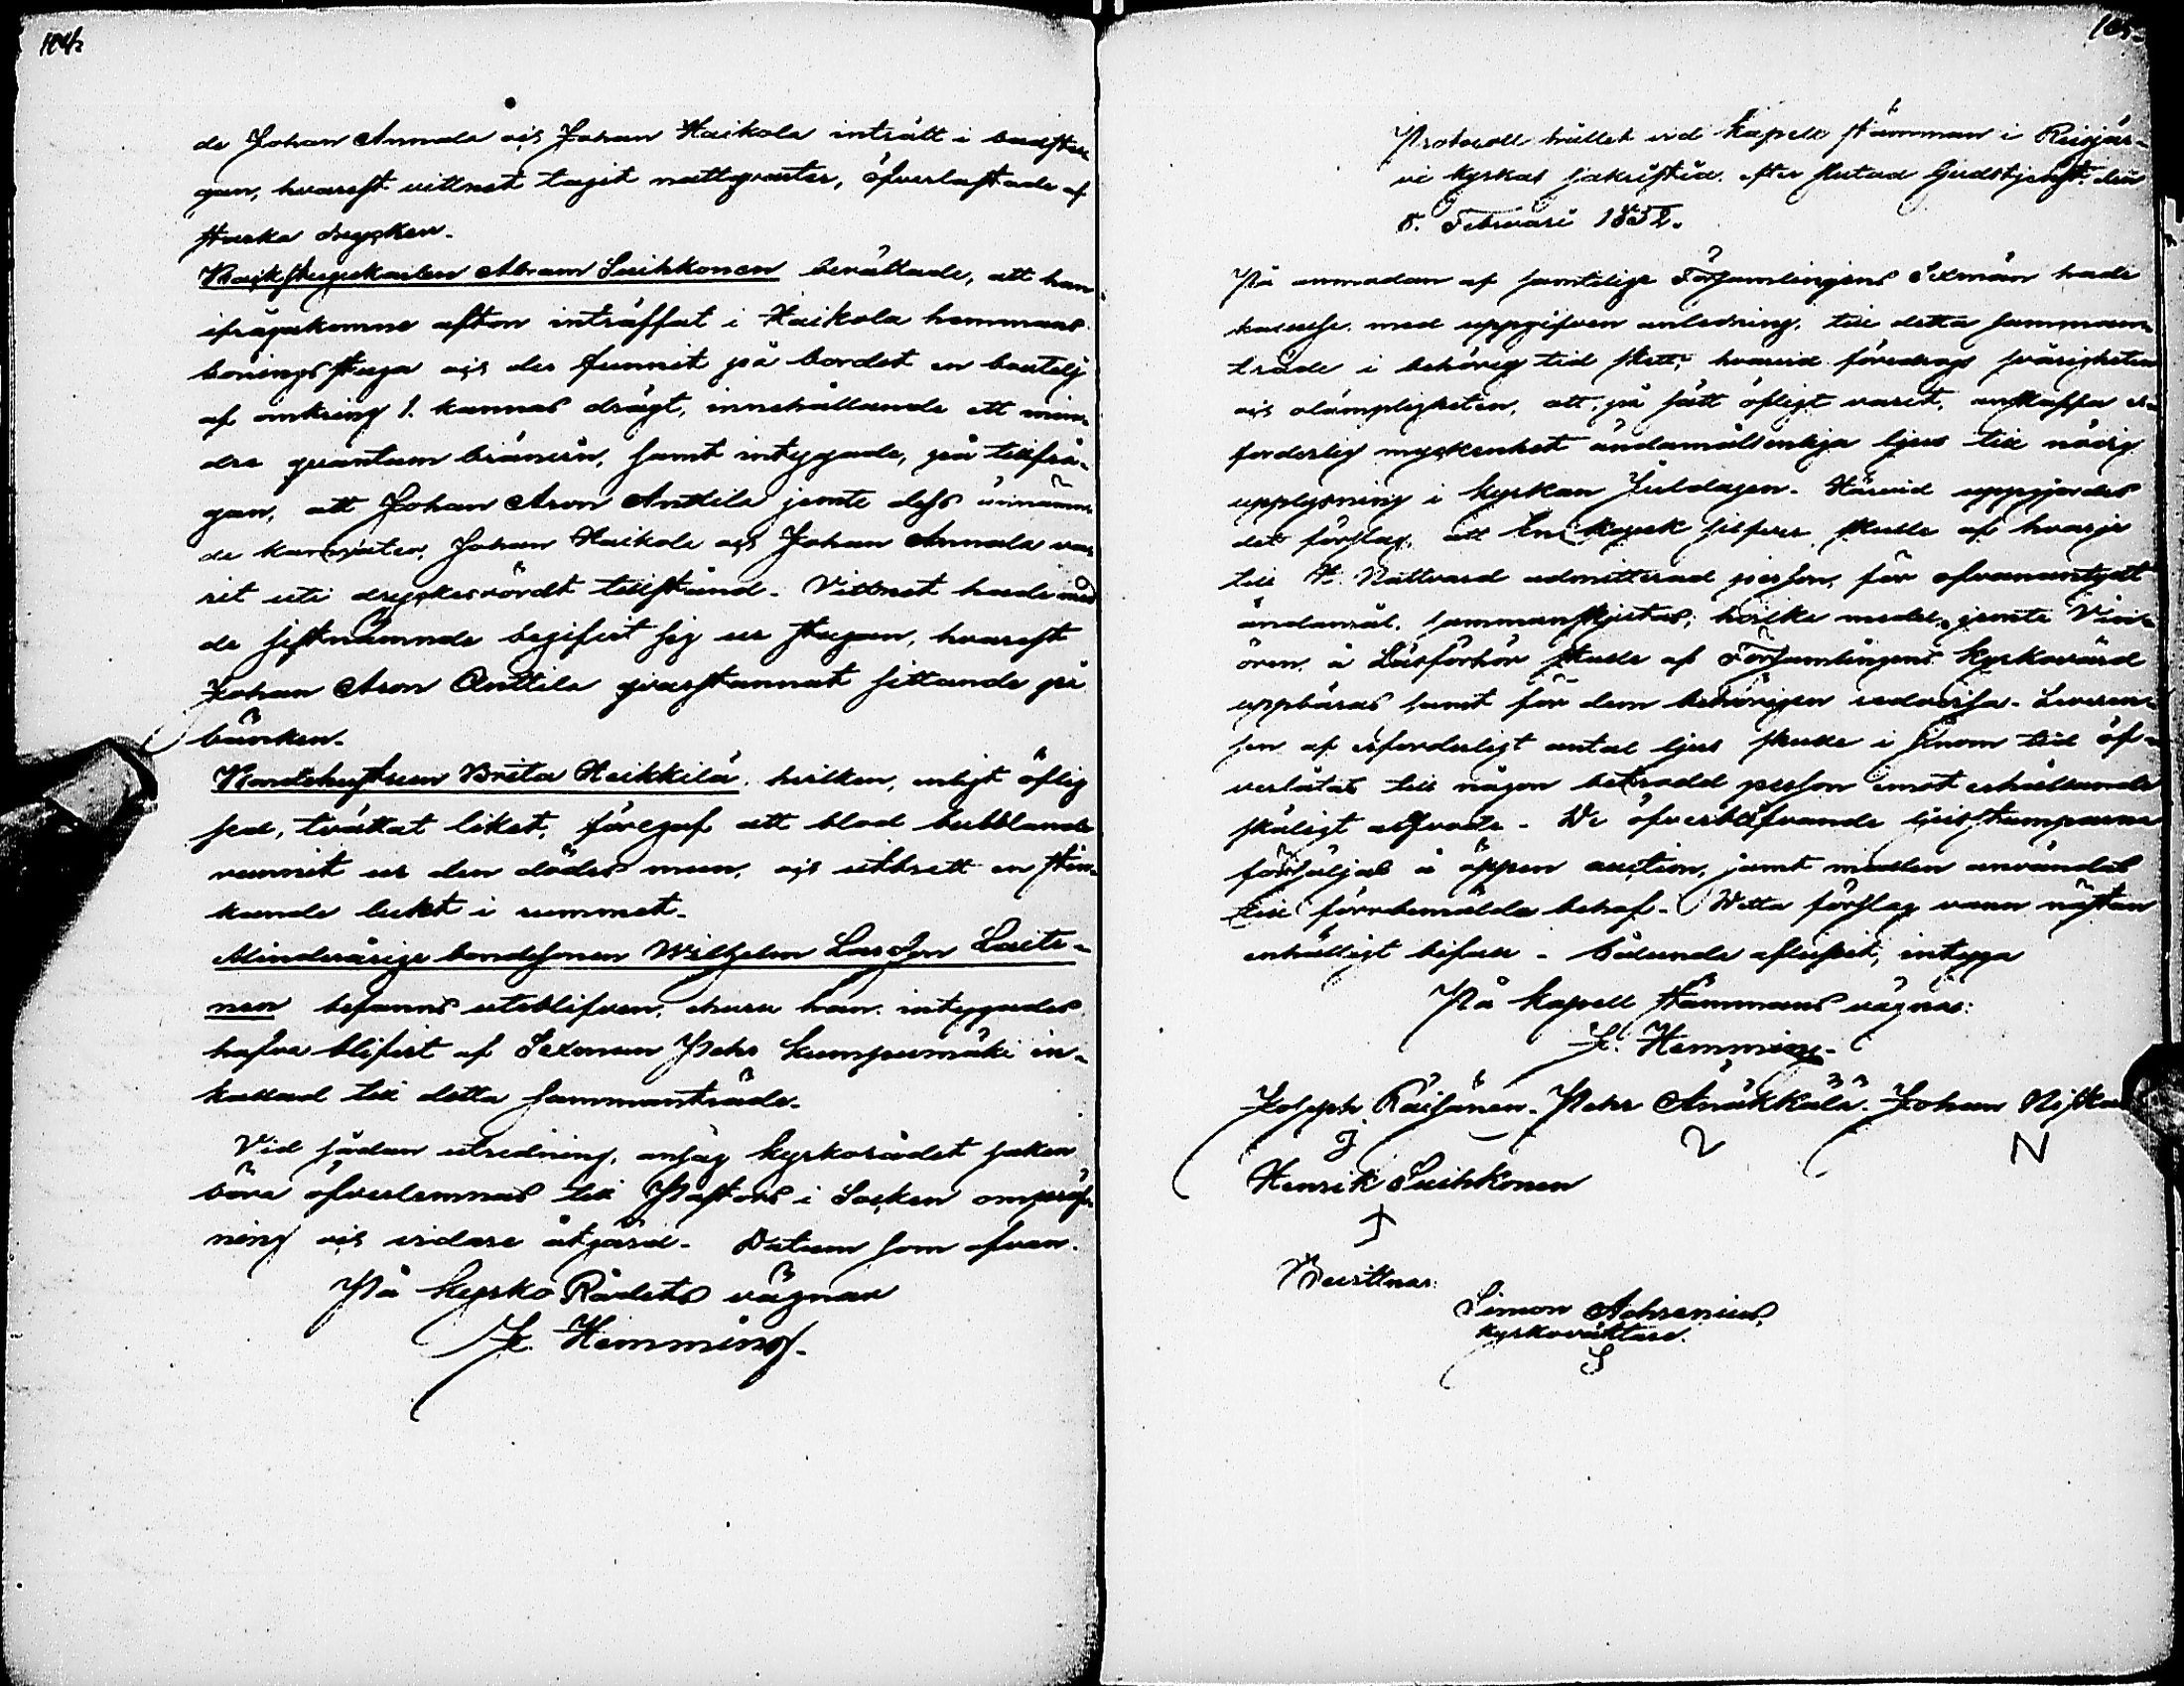 104.
de Johan Annala och Johan Haikola inträtt i badstu
gan, hvarest vittnet tagit nattqvarter, öfverlastade af
starka drycker.
Backstugukarlen Abram Suihkonen berättade, att han
ifrågakomne afton inträffat i Haikola hemmans
boningsstuga och der funnit på bordet en boutelj
af omkring 1. kannas drägt, innehållande ett min-
dre quantum bränvin, samt intygade, på tillfrå-
gan, att Johan Aron Anttila jemte dess
de kamrater, Johan Haikola och Johan Annala va-
rit uti dryckesrördt tillstånd. Vittnet hade med
de sistnämnde begifvit sig ur stugan, hvarest
Johan Aron Anttila qvarstannat sittande på
bänken.
Bondehustrun Brita Heikkilä, hvilken, enligt öflig
sed, tvättat liket, föregaf att blod bubblande
runnit ur den dödes mun, och utbredt en stin-
kande lukt i rummet.
Minderårige bondesonen Wilhelm Larsson Laiti-
nen befanns utebliven, churu han intygades
hafva blifvit af Sexman Pehr Kumpumäki in-
kallad till detta sammanträde.
Vid sådan utredning, ansåg Kyrkorådet saken
böra öfverlemnas till Pastors i Socken ompröf-
ning och vidare åtgärd. Datum som ofvan.
På Kyrko Rådets vägnar
K. Hemming.
105.
Protocoll hållet vid Kapell stämman i Reisjär-
vi kyrkas sakristia efter slutad Gudstjenst den
8. Februari 1852.
På anmodan af samtelige Församlingens Sexmän hade
kallelse med uppgifven anledning till detta samman-
träde i behörig tid skett, hvarvid föredrogs svårigheten
och olämpligheten, att, på sätt öfligt varit, anskaffa er-
forderlig myckenhet ändamålsenliga ljus till nödig
upplysning i Kyrkan Juldagen. Härvid uppgjordes
det förslag, att En kopek silfver skulle af hvarje
till H. Nattvard admitterad person, för ofvanantydt
ändamål, sammanskjutas; hvilka medel, jemte Vin-
ören å Läsförhör skulle af Församlingens Kyrkovärd
uppbäras samt för dem behörigen redovisa. Leveran-
sen af erforderligt antal ljus skulle i sinom tid öf-
verlåtas till någon betrodd person emot erhållande
skäligt arfvode. De öfverblifvande ljusstumparne
försäljas å öppen auction, samt medlen användas
till förrbemälda behof. Detta förslag vann nästan
enhälligt bifall. Sålunda aflupit, intyga
På Kapell stämmans vägnar:
K. Hemming.
Joseph Räisänen. Pehr Änäkkälä. Johan Niska
J 2 N
Henrik Suihkonen
Bevittnar:
Simon Achrenius,
kyrkoväktare.
S